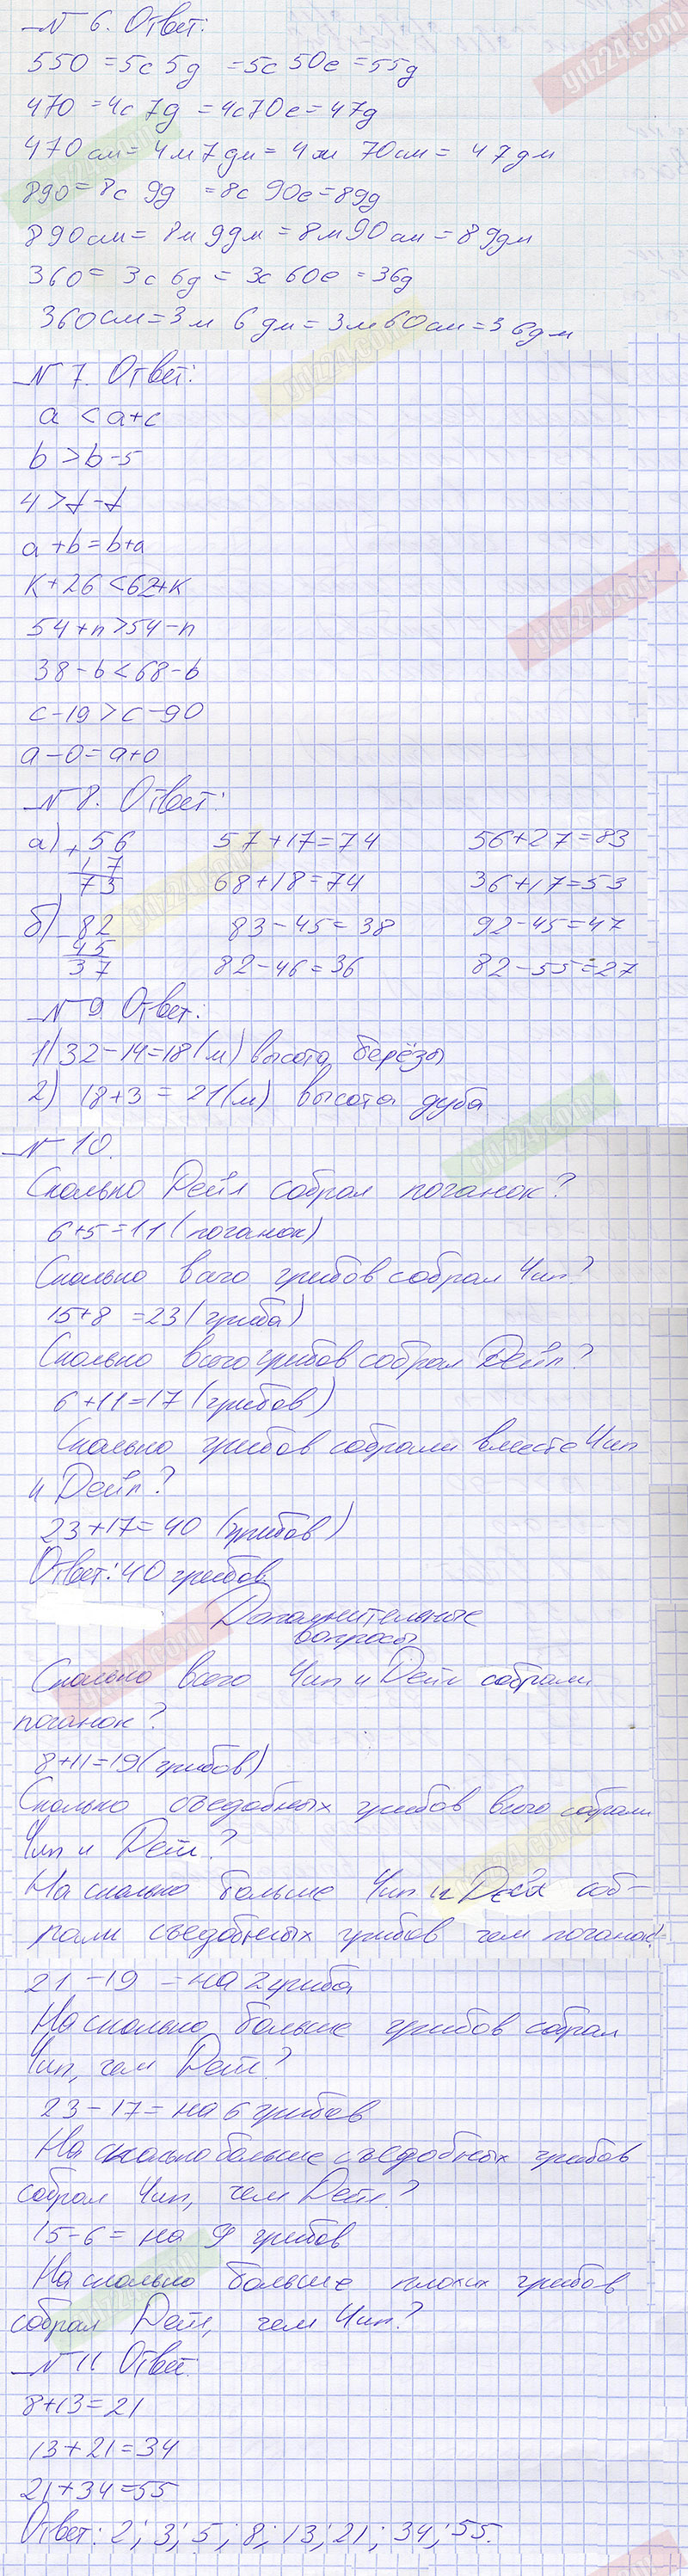 № 6. Ответ:
550 = 5с 5д = 5с 50е = 55д
470 = 4с 7д = 4с 70е = 47д
470 см = 4 м 7 дм = 4 м 70 см = 47 дм
890 = 8с 9д = 8с 90е = 89д
890 см = 8м 9дм = 8м 90 см = 89дм
360 = 3с 6д = 3с 60е = 36д
360 см = 3 м 6 дм = 3м 60 см = 36дм
№ 7. Ответ:
a < a+c
b > b-5
4 > t-t
a + b = b+a
k + 26 < 62+k
54 + n > 54 - n
38 - b < 68 - b
c - 19 > c - 90
a - 0 = a+0
№ 8. Ответ:
а) + 56 57 + 17 = 74 56 + 27 = 83
17
73 68 + 18 = 74 36 + 17 = 53
б) - 82 83 - 45 = 38 92 - 45 = 47
45
37 82 - 46 = 36 82 - 55 = 27
№ 9 Ответ:
1) 32 - 14 = 18 (м) высота берёзы
2) 18 + 3 = 21 (м) высота дуба
№ 10.
Сколько Дейл собрал поганок?
6 + 5 = 11 (поганок)
Сколько всего грибов собрал Чип?
15 + 8 = 23 (гриба)
Сколько всего грибов собрал Дейл?
6 + 11 = 17 (грибов)
Сколько грибов собрали вместе Чип
и Дейл?
23 + 17 = 40 (грибов)
Ответ: 40 грибов.
Дополнительные
вопросы
Сколько всего Чип и Дейл собрали
поганок?
8 + 11 = 19 (грибов)
Сколько съедобных грибов всего собрали
Чип и Дейл?
На сколько больше Чип и Дейл соб-
рали съедобных грибов чем поганок?
21 - 19 = на 2 гриба
На сколько больше грибов собрал
Чип, чем Дейл?
23 - 17 = на 6 грибов
На сколько больше съедобных грибов
собрал Чип, чем Дейл?
15 - 6 = на 9 грибов
На сколько больше плохих грибов
собрал Дейл, чем Чип?
№ 11 Ответ
8 + 13 = 21
13 + 21 = 34
21 + 34 = 55
Ответ: 2; 3; 5; 8; 13; 21; 34; 55.
gdz24.com